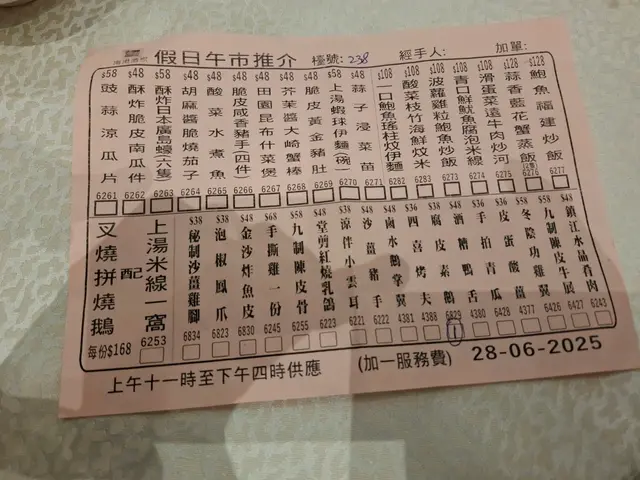 假日午市推介
檯號: 238
經手人:
加單:
$58 豉蒜涼瓜片 6261
$48 酥炸脆皮南瓜件 6262
$58 酥炸日本廣島蠔(六隻) 6263
$48 胡麻醬脆燒茄子 6264
$48 酸菜水煮魚 6265
$48 脆皮咸香豬手(四件) 6266
$48 田園昆布什菜煲 6267
$48 芥茉醬大崎蟹棒 6268
$58 脆皮黃金豬肚 6269
$58 上湯蝦球伊麵(一碗) 6270
$48 蒜子浸菜苗 6271
$108 一口鮑魚瑤柱炆伊麵 6282
$108 酸菜枝竹海鮮炆米 6283
$108 波蘿雞粒鮑魚炒飯 6273
$108 青口鮮魷魚腐泡米線 6274
$108 滑蛋菜遠牛肉炒河 6275
$128 蒜香藍花蟹蒸飯 6276
$128 鮑魚福建炒飯 6277
叉燒拼燒鵝
配
上湯米線一窩
每份$168
6253
$38 秘制沙薑雞腳 6834
$38 泡椒鳳爪 6823
$48 金沙炸魚皮 6830
$68 手撕雞一份 6245
$58 九制陳皮骨 6255
$48 堂剪紅燒乳鴿 6223
$38 涼伴小雲耳 6221
$48 沙薑豬手 6222
$48 鹵水鵝掌翼 4381
$36 四喜烤夫 4388
$38 腐皮素鵝 6829
$48 酒糟鴨舌 4380
$36 手拍青瓜 6428
$36 皮蛋酸薑 4377
$58 冬陰功雞翼 6426
$58 九制陳皮牛展 6427
$48 鎮江水晶肴肉 6243
上午十一時至下午四時供應
(加一服務費)
28-06-2025